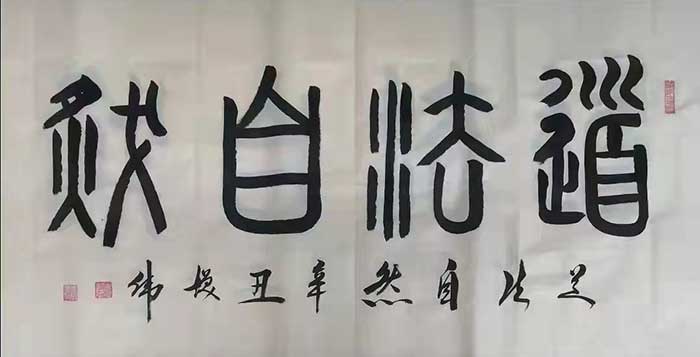 道法自然
道法自然辛丑伟